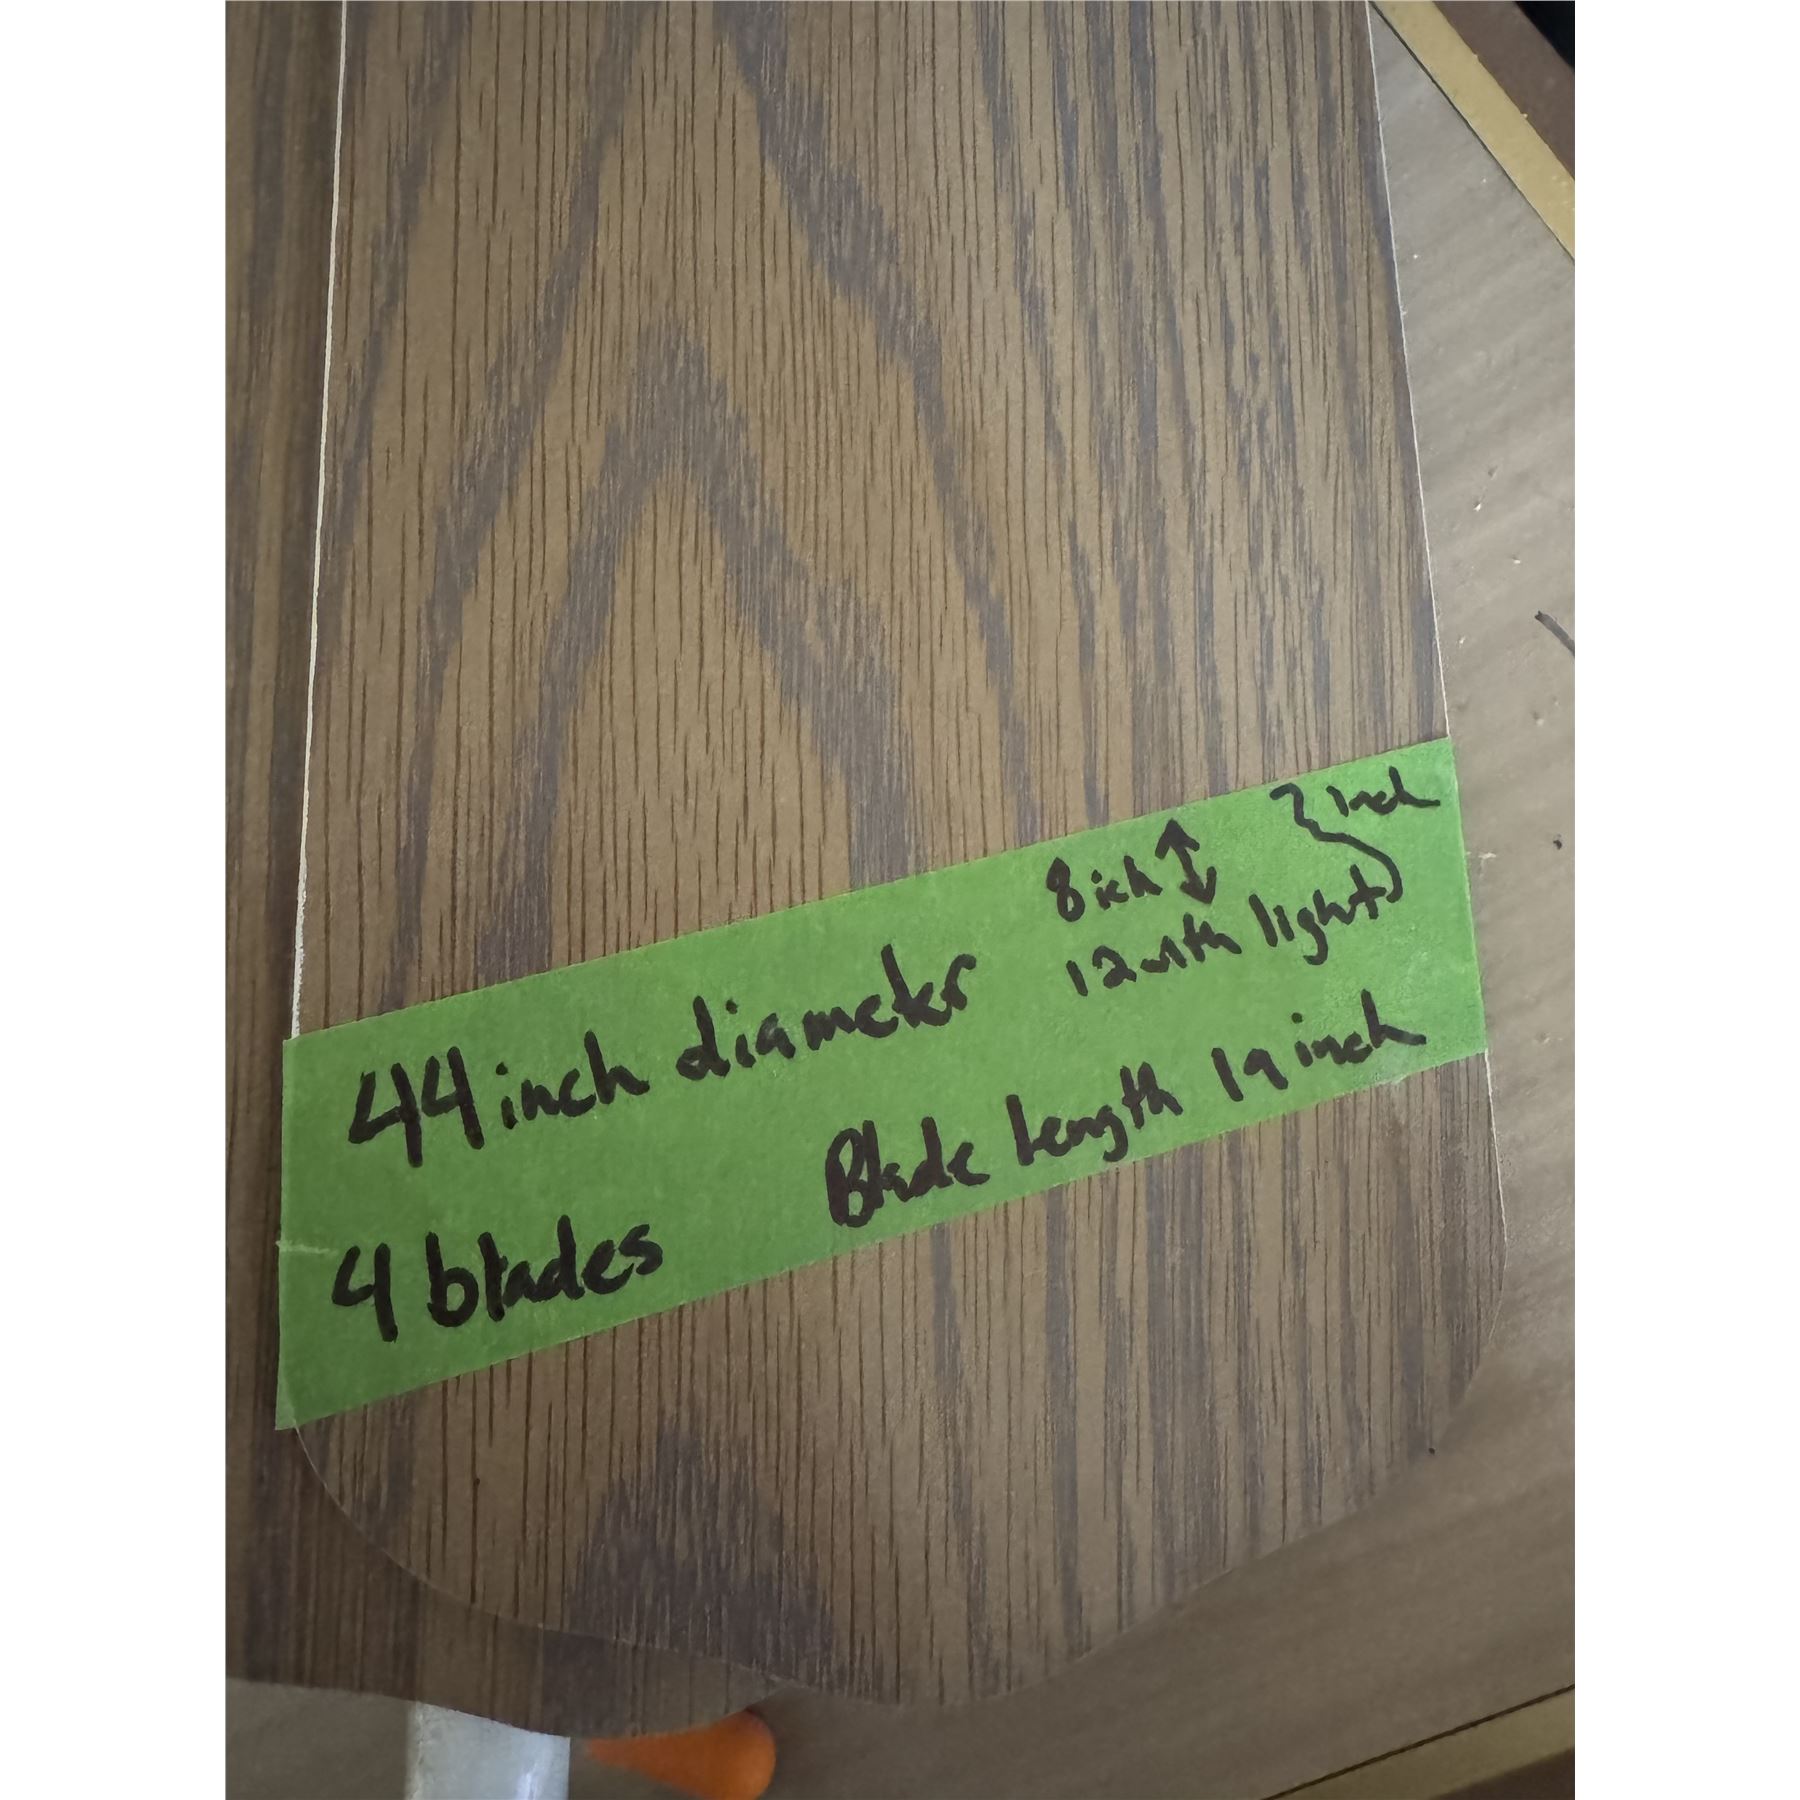 44 inch diameter
8 ich ↕
12 with light } inch
4 blades
Blade length 19 inch